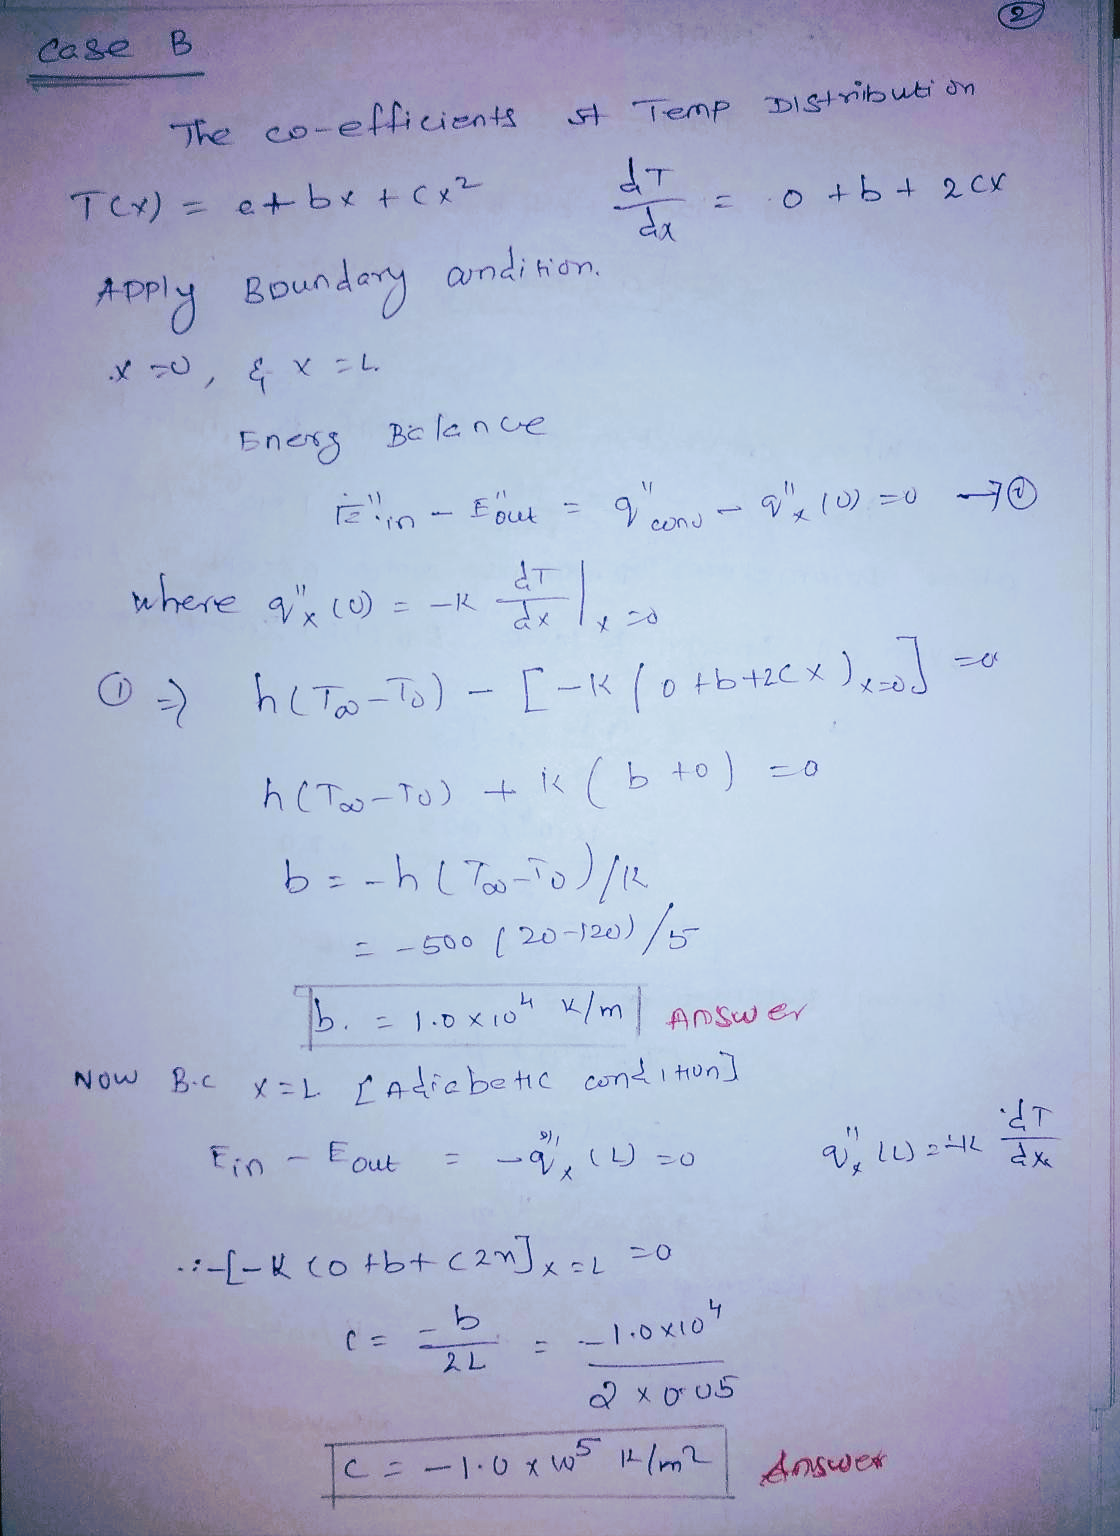 2
Case B
The co-efficients st Temp Distribution
T(x) = a + bx + cx² dT/dx = 0 + b + 2cx
Apply Boundary condition.
x=0, & x=L.
Energ Balance
Ė"in - E"out = q"conv - q"x (0) = 0 →①
where q"x (0) = -K dT/dx |x=0
① ⇒ h(T∞-T0) - [-K (0+b+2cx)x=0] =0
h(T∞-T0) + k (b+0) =0
b = -h (T∞-T0)/k
= -500 (20-120)/5
b. = 1.0 x 10⁴ K/m Answer
Now B.C x=L [Adiabetic condition]
Ein - Eout = -q"x (L) =0 q"x (L) = -k dT/dx
∴ -[-K (0+b+c2x]x=L =0
c = -b/2L = -1.0x10⁴/2 x 0.05
c = -1.0 x 10⁵ K/m² Answer